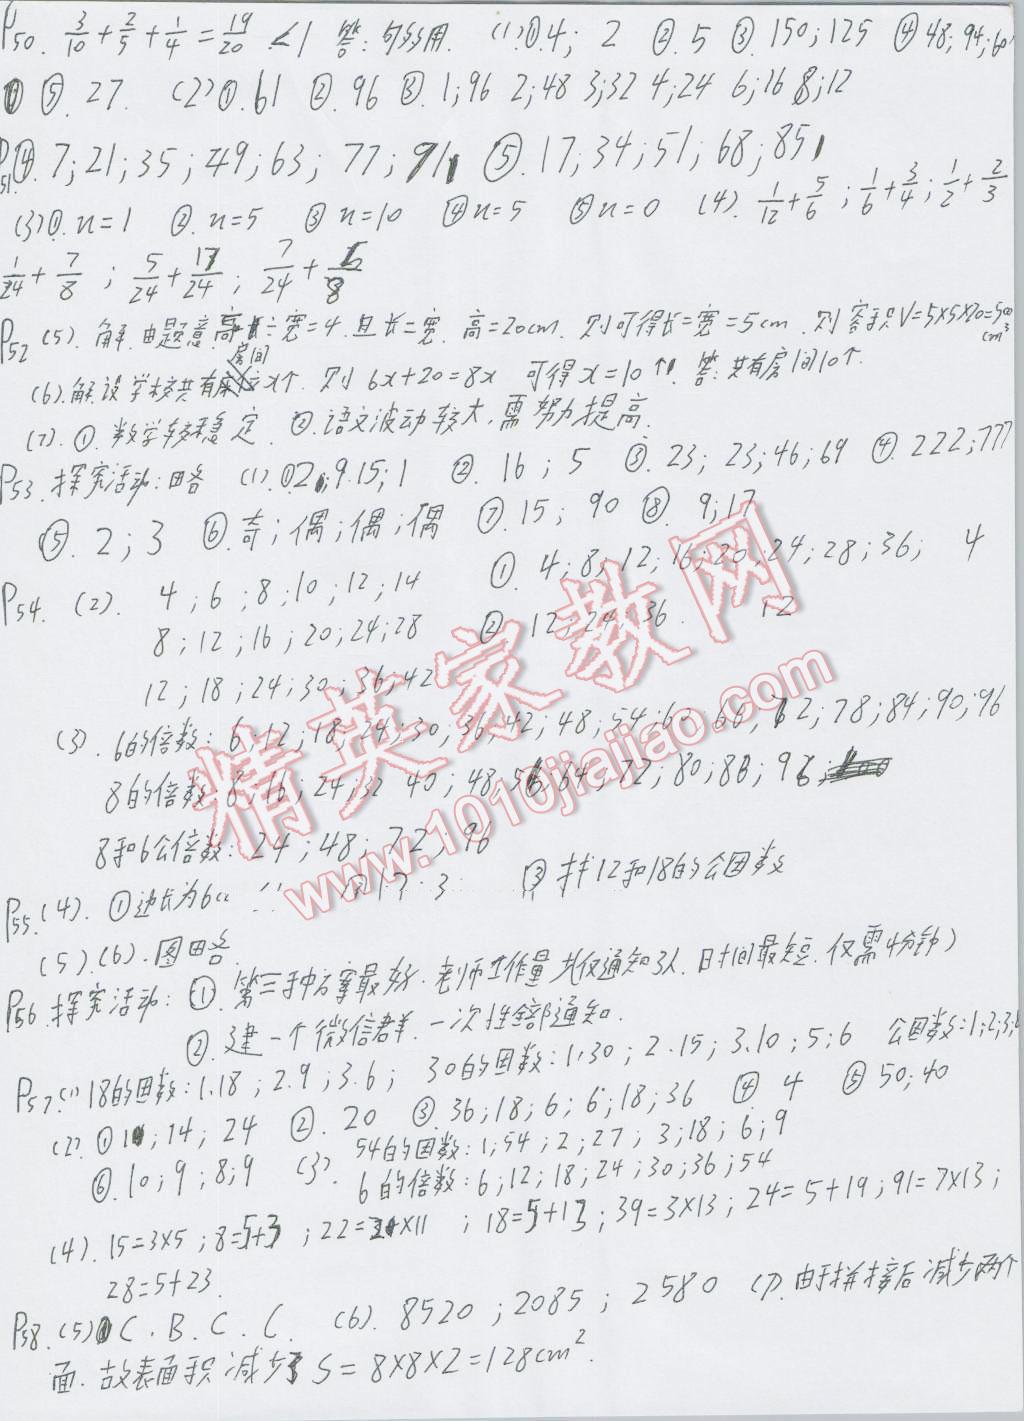 P50. 3/10+2/5+1/4=19/20<1 答:够用. (1)①.4; 2 ②.5 ③.150;125 ④48;94;60
⑤.27. (2)①.61 ②.96 ③.1;96 2;48 3;32 4;24 6;16 8;12
P51 ④.7;21;35;49;63; 77;91 ⑤.17,34;51;68;85
(3)①.n=1 ②.n=5 ③n=10 ④n=5 ⑤n=0 (4). 1/12+5/6 ; 1/6+3/4; 1/2+2/3
1/24+7/8 ; 5/24+17/24; 7/24+
P52 (5). 解.由题意.高÷宽=4.且长=宽.高=20cm.则可得长=宽=5cm.则容积V=5×5×20=500cm³
(6).解.设学校共有房间x个.则 6x+20=8x 可得x=10个.答:共有房间10个.
(7).①.数学较稳定.②.语文波动较大,需努力提高.
P53.探究活动:略 (1).①2;9.15;1 ②.16;5 ③.23;23;46;69 ④.222;777
⑤.2;3 ⑥.奇;偶;偶;偶 ⑦.15;90 ⑧.9;17
P54.(2). 4;6;8;10;12;14 ①.4;8;12;16;20;24;28;36; 4
8;12;16;20;24;28 ②12;24;36. 12
12;18;24;30;36;42
(3).6的倍数:6;12;18;24;30;36;42;48;54;60;66;72;78;84;90;96
8的倍数:8;16;24;32 40;48;56;64;72;80;88;96;
8和6公倍数:24;48;72;96
P55.(4).①边长为6 ③找12和18的公因数
(5).(6).图略.
P56.探究活动:①.第三种方案最好.老师工作量 共仅通知3队.时间最短.仅需4分钟)
②.建一个微信群.一次性全部通知.
P57.(1)18的因数:1.18;2.9;3.6; 30的因数:1.30;2.15;3.10;5;6 公因数:1;2;3;6
(2).①1;14;24 ②.20 ③.36;18;6;6;18;36 ④ 4 ⑤50;40
⑥.10;9;8;9 (3). 54的因数:1;54;2;27; 3;18;6;9
6的倍数:6;12;18;24;30;36;54
(4).15=3×5;8=5+3;22=2×11;18=5+13;39=3×13;24=5+19;91=7×13;
28=5+23.
P58.(5)C.B.C.C. (6).8520;2085;2580 (7).由于拼接后减少两个
面.故表面积减少了S=8×8×2=128cm².
精英家教网
www.1010jiajiao.com